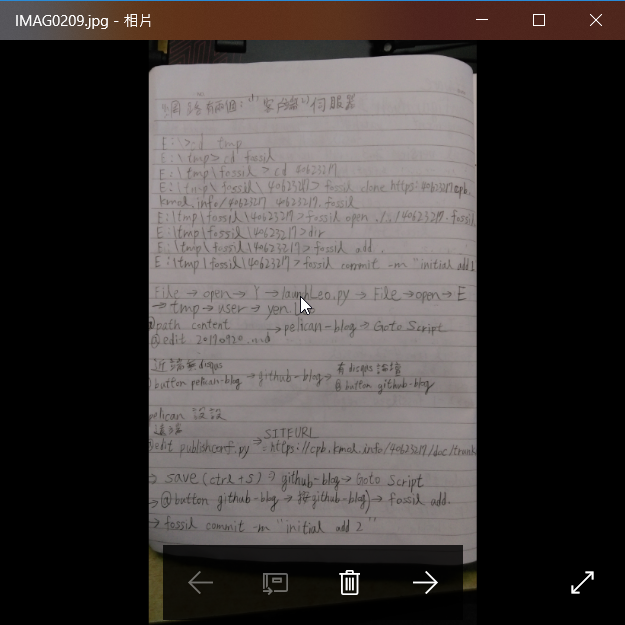 IMAG0209.jpg - 相片
網路有兩過: 客戶端 伺服器
E:\>cd tmp
E:\tmp>cd fossil
E:\tmp\fossil>cd 40623217
E:\tmp\fossil\40623217>fossil clone https:40623217@cpb.
kmol.info/40623217 40623217.fossil
E:\tmp\fossil\40623217>fossil open ./../40623217.fossil
E:\tmp\fossil\40623217>dir
E:\tmp\fossil\40623217>fossil add .
E:\tmp\fossil\40623217>fossil commit -m "initial add1
File → open → Y → launchLeo.py → File → open → E
→ tmp → user → yen
@path content → pelican-blog → Goto Script
@edit 20170920.md
近端無disqus
button pelican-blog → github-blog → 有disqus
@button github-blog
pelican 設設
遠端
edit publishconf.py → SITEURL
= https://cpb.kmol.info/40623217/doc/trunk
→ save (ctrl+s) → github-blog → Goto Script
→ @button github-blog → 按github-blog) → fossil add.
→ fossil commit -m "initial add 2"